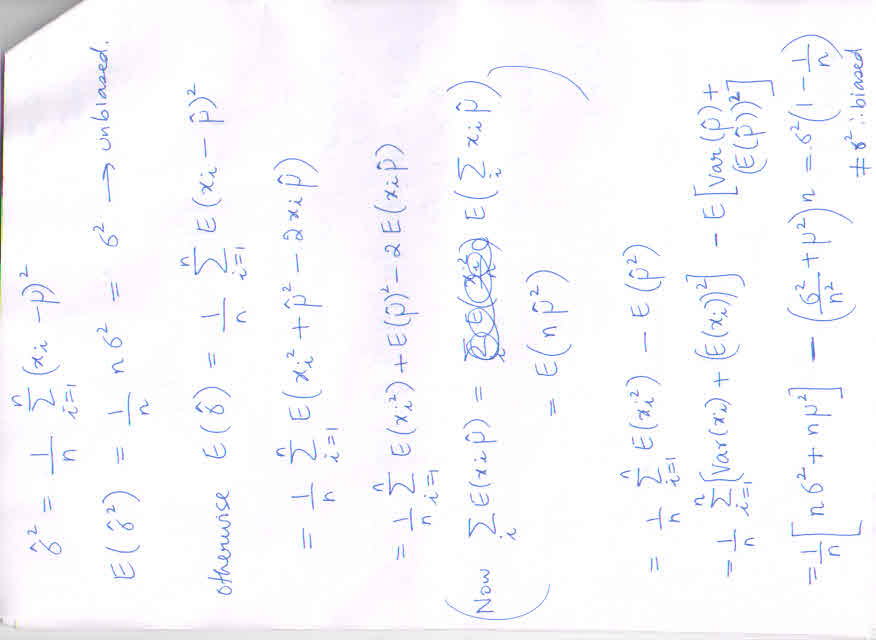 σ̂² = 1/n Σ_{i=1}^{n} (xi − μ)²
E(σ̂²) = 1/n n σ² = σ² → unbiased.
otherwise E(σ̂) = 1/n Σ_{i=1}^{n} E(xi − μ̂)²
= 1/n Σ_{i=1}^{n} E(xi² + μ̂² − 2xi μ̂)
= 1/n Σ_{i=1}^{n} E(xi²) + E(μ̂)² − 2E(xi μ̂)
(Now Σ_i E(xi μ̂) = E(Σ_i xi μ̂)
= E(n μ̂²))
= 1/n Σ_{i=1}^{n} E(xi²) − E(μ̂²)
= 1/n Σ_{i=1}^{n} [Var(xi) + (E(xi))²] − E[Var(μ̂) + (E(μ̂))²]
= 1/n [nσ² + nμ²] − (σ²/n² + μ²)n = σ²(1 − 1/n)
≠ σ² ∴ biased